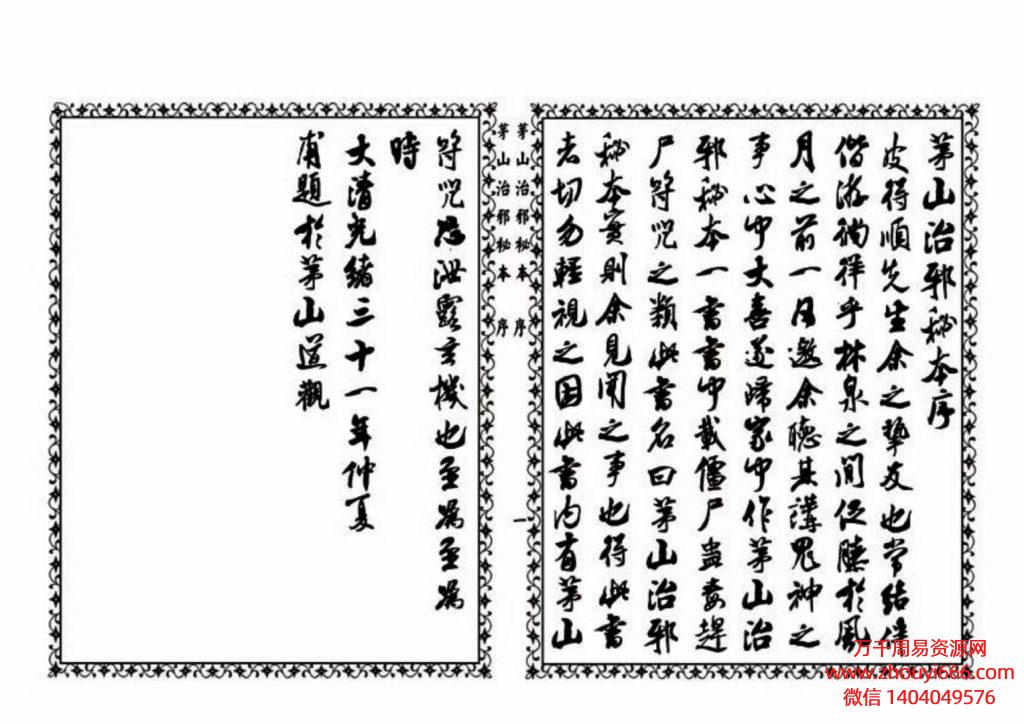 茅山治邪秘本序
皮得順先生余之摯友也常結伴
偕游徜徉乎林泉之間促膝於風
月之前一日邀余聽其講鬼神之
事心中大喜遂歸家中作茅山治
邪秘本一書書中載僵尸蛊毒趕
尸符咒之類此書名曰茅山治邪
秘本實則余見聞之事也得此書
者切勿輕視之因此書內有茅山
茅山治邪秘本 序
一
茅山治邪秘本 序
符咒恐泄露玄機也至為至為
時
大清光緒三十一年仲夏
甫題於茅山道觀
万千周易资源网
www.zhouyi686.com
微信 1404049576